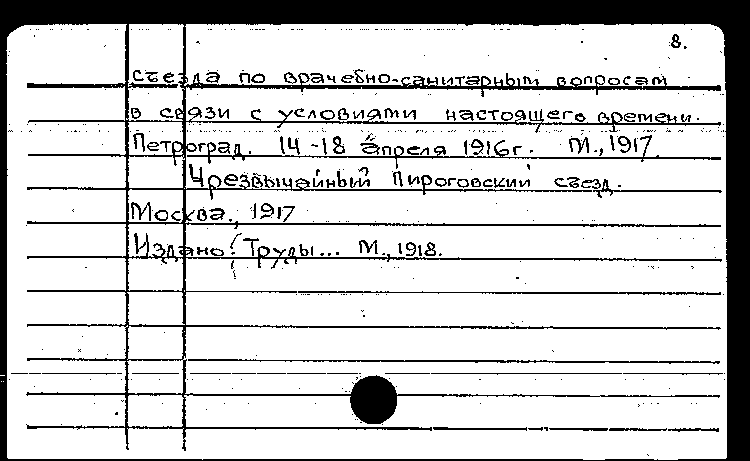 8.
съезда по врачебно-санитарным вопросам
в связи с условиями настоящего времени.
Петроград. 14-18 апреля 1916г. М., 1917.
Чрезвычайный Пироговский съезд.
Москва., 1917
Издано: Труды... М., 1918.